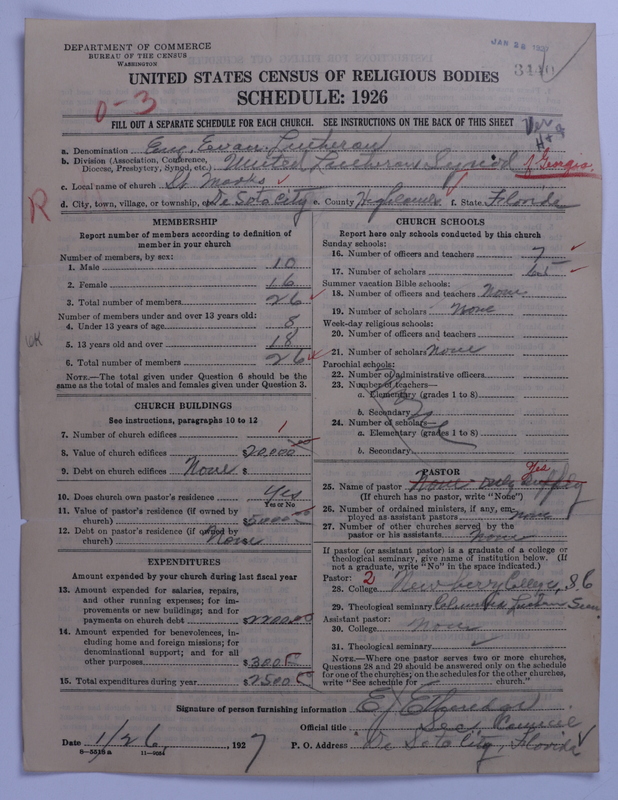 DEPARTMENT OF COMMERCE
BUREAU OF THE CENSUS
WASHINGTON
JAN 28 1927
3440
UNITED STATES CENSUS OF RELIGIOUS BODIES
SCHEDULE: 1926
0-3
FILL OUT A SEPARATE SCHEDULE FOR EACH CHURCH. SEE INSTRUCTIONS ON THE BACK OF THIS SHEET
a. Denomination Eng. Evan. Lutheran
b. Division (Association, Conference, Diocese, Presbytery, Synod, etc.) United Lutheran Synod of Georgia.
c. Local name of church St Marks
d. City, town, village, or township, etc. De Soto City e. County Highlands f. State Florida
R
MEMBERSHIP
Report number of members according to definition of member in your church
Number of members, by sex:
1. Male 10
2. Female 16
3. Total number of members 26
Number of members under and over 13 years old:
4. Under 13 years of age 8
5. 13 years old and over 18
6. Total number of members 26
NOTE.—The total given under Question 6 should be the same as the total of males and females given under Question 3.
CHURCH BUILDINGS
See instructions, paragraphs 10 to 12
7. Number of church edifices 1
8. Value of church edifices $20,000
9. Debt on church edifices None $
10. Does church own pastor's residence Yes
Yes or No
11. Value of pastor's residence (if owned by church) $5000
12. Debt on pastor's residence (if owned by church) None
EXPENDITURES
Amount expended by your church during last fiscal year
13. Amount expended for salaries, repairs, and other running expenses; for improvements or new buildings; and for payments on church debt $2200.00
14. Amount expended for benevolences, including home and foreign missions; for denominational support; and for all other purposes $300
15. Total expenditures during year $2500
CHURCH SCHOOLS
Report here only schools conducted by this church
Sunday schools:
16. Number of officers and teachers 7
17. Number of scholars
Summer vacation Bible schools:
18. Number of officers and teachers None
19. Number of scholars None
Week-day religious schools:
20. Number of officers and teachers
21. Number of scholars None
Parochial schools:
22. Number of administrative officers
23. Number of teachers—
a. Elementary (grades 1 to 8)
b. Secondary
24. Number of scholars—
a. Elementary (grades 1 to 8)
b. Secondary
PASTOR
Yes
25. Name of pastor None only Supply
(If church has no pastor, write "None")
26. Number of ordained ministers, if any, employed as assistant pastors none
27. Number of other churches served by the pastor or his assistants none
If pastor (or assistant pastor) is a graduate of a college or theological seminary, give name of institution below. (If not a graduate, write "No" in the space indicated.)
Pastor: 2
28. College Newberry College, SC
29. Theological seminary Columbia Luthern Sem
Assistant pastor:
30. College None
31. Theological seminary
NOTE.—Where one pastor serves two or more churches, Questions 28 and 29 should be answered only on the schedule for one of the churches; on the schedules for the other churches, write "See schedule for church."
Signature of person furnishing information
Official title Sec Council
Date 1/26, 1927 P. O. Address De Soto City, Florida
8-5515a 11-9054